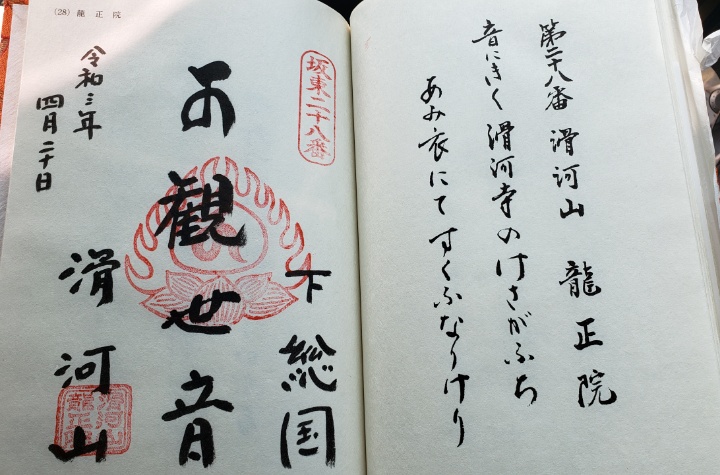 第二十八番 滑河山 龍正院
音にきく 滑河寺の けさがふち
あみ衣にて すくふなりけり
坂東二十八番
下総国
観世音
滑河山
滑河山
龍正院
令和三年
四月二十日
(28) 龍正院